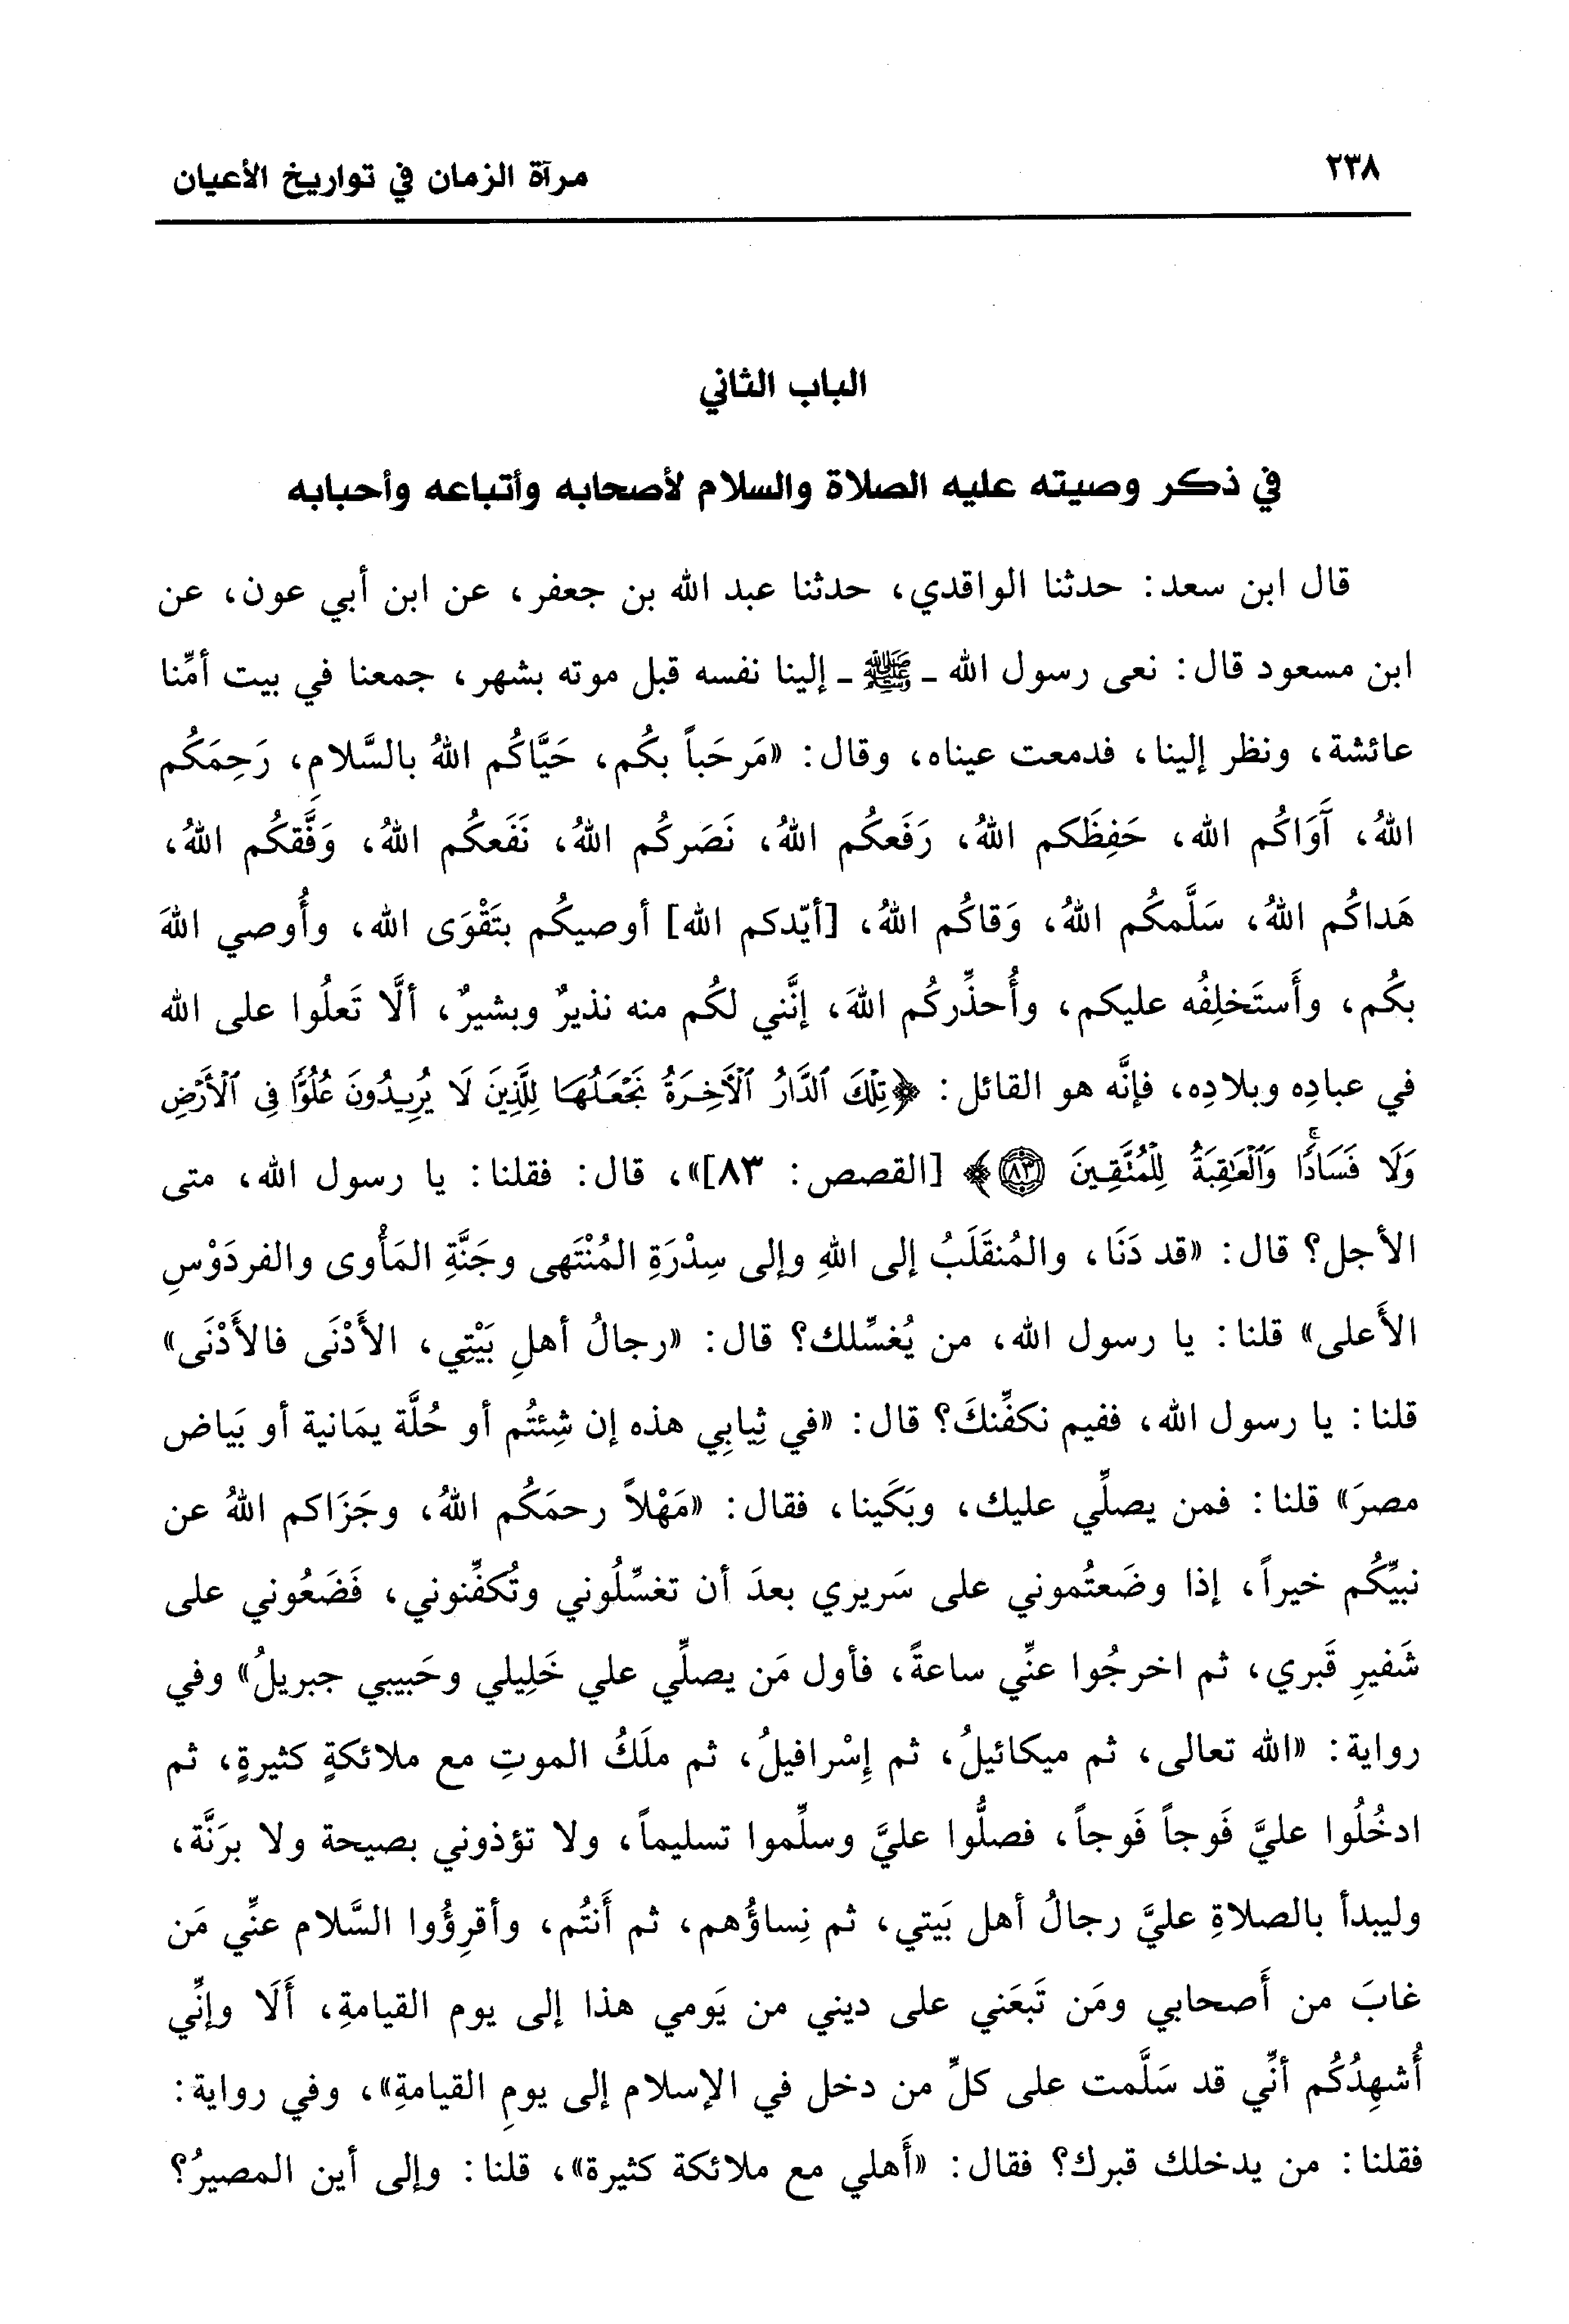 ٢٣٨
مرآة الزمان في تواريخ الأعيان
الباب الثاني
في ذكر وصيته عليه الصلاة والسلام لأصحابه وأتباعه وأحبابه
قال ابن سعد: حدثنا الواقدي، حدثنا عبد الله بن جعفر، عن ابن أبي عون، عن
ابن مسعود قال: نعى رسول الله ـ ﷺ ـ إلينا نفسه قبل موته بشهر، جمعنا في بيت أمِّنا
عائشة، ونظر إلينا، فدمعت عيناه، وقال: «مَرحَباً بكُم، حَيَّاكُم اللهُ بالسَّلامِ، رَحِمَكُم
اللهُ، آوَاكُم الله، حَفِظَكم اللهُ، رَفَعكُم اللهُ، نَصَركُم اللهُ، نَفَعكُم اللهُ، وَفَّقكُم اللهُ،
هَداكُم اللهُ، سَلَّمكُم اللهُ، وَقاكُم اللهُ، [أيّدكم الله] أوصيكُم بتَقْوَى الله، وأُوصي اللهَ
بكُم، وأَستَخلِفُه عليكم، وأُحذِّركُم اللهَ، إنَّني لكُم منه نذيرٌ وبشيرٌ، ألَّا تَعلُوا على الله
في عبادِه وبلادِه، فإنَّه هو القائل: ﴿تِلْكَ ٱلدَّارُ ٱلْأَخِرَةُ نَجْعَلُهَا لِلَّذِينَ لَا يُرِيدُونَ عُلُوًّا فِى ٱلْأَرْضِ
وَلَا فَسَادًاۚ وَٱلْعَٰقِبَةُ لِلْمُتَّقِينَ ٨٣﴾ [القصص: ٨٣]»، قال: فقلنا: يا رسول الله، متى
الأجل؟ قال: «قد دَنَا، والمُنقَلَبُ إلى اللهِ وإلى سِدْرَةِ المُنْتَهى وجَنَّةِ المَأْوى والفردَوْسِ
الأَعلى» قلنا: يا رسول الله، من يُغسِّلك؟ قال: «رجالُ أهلِ بَيْتِي، الأَدْنَى فالأَدْنَى»
قلنا: يا رسول الله، ففيم نكفِّنكَ؟ قال: «في ثِيابِي هذه إن شِئتُم أو حُلَّة يمَانية أو بَياض
مصرَ» قلنا: فمن يصلِّي عليك، وبَكَينا، فقال: «مَهْلاً رحمَكُم اللهُ، وجَزَاكم اللهُ عن
نبيِّكُم خيراً، إذا وضَعتُموني على سَريري بعدَ أن تغسِّلُوني وتُكفِّنوني، فَضَعُوني على
شَفيرِ قَبري، ثم اخرجُوا عنِّي ساعةً، فأول مَن يصلِّي علي خَلِيلي وحَبيبي جبريلُ» وفي
رواية: «الله تعالى، ثم ميكائيلُ، ثم إِسْرافيلُ، ثم ملَكُ الموتِ مع ملائكةٍ كثيرةٍ، ثم
ادخُلُوا عليَّ فَوجاً فَوجاً، فصلُّوا عليَّ وسلِّموا تسليماً، ولا تؤذوني بصيحة ولا برَنَّة،
وليبدأ بالصلاةِ عليَّ رجالُ أهل بَيتي، ثم نِساؤُهم، ثم أَنتُم، وأقرِؤُوا السَّلام عنِّي مَن
غابَ من أَصحابي ومَن تَبعَني على ديني من يَومي هذا إلى يوم القيامةِ، أَلَا وإنِّي
أُشهِدُكُم أنِّي قد سَلَّمت على كلِّ من دخل في الإسلام إلى يومِ القيامةِ»، وفي رواية:
فقلنا: من يدخلك قبرك؟ فقال: «أَهلي مع ملائكة كثيرة»، قلنا: وإلى أين المصيرُ؟